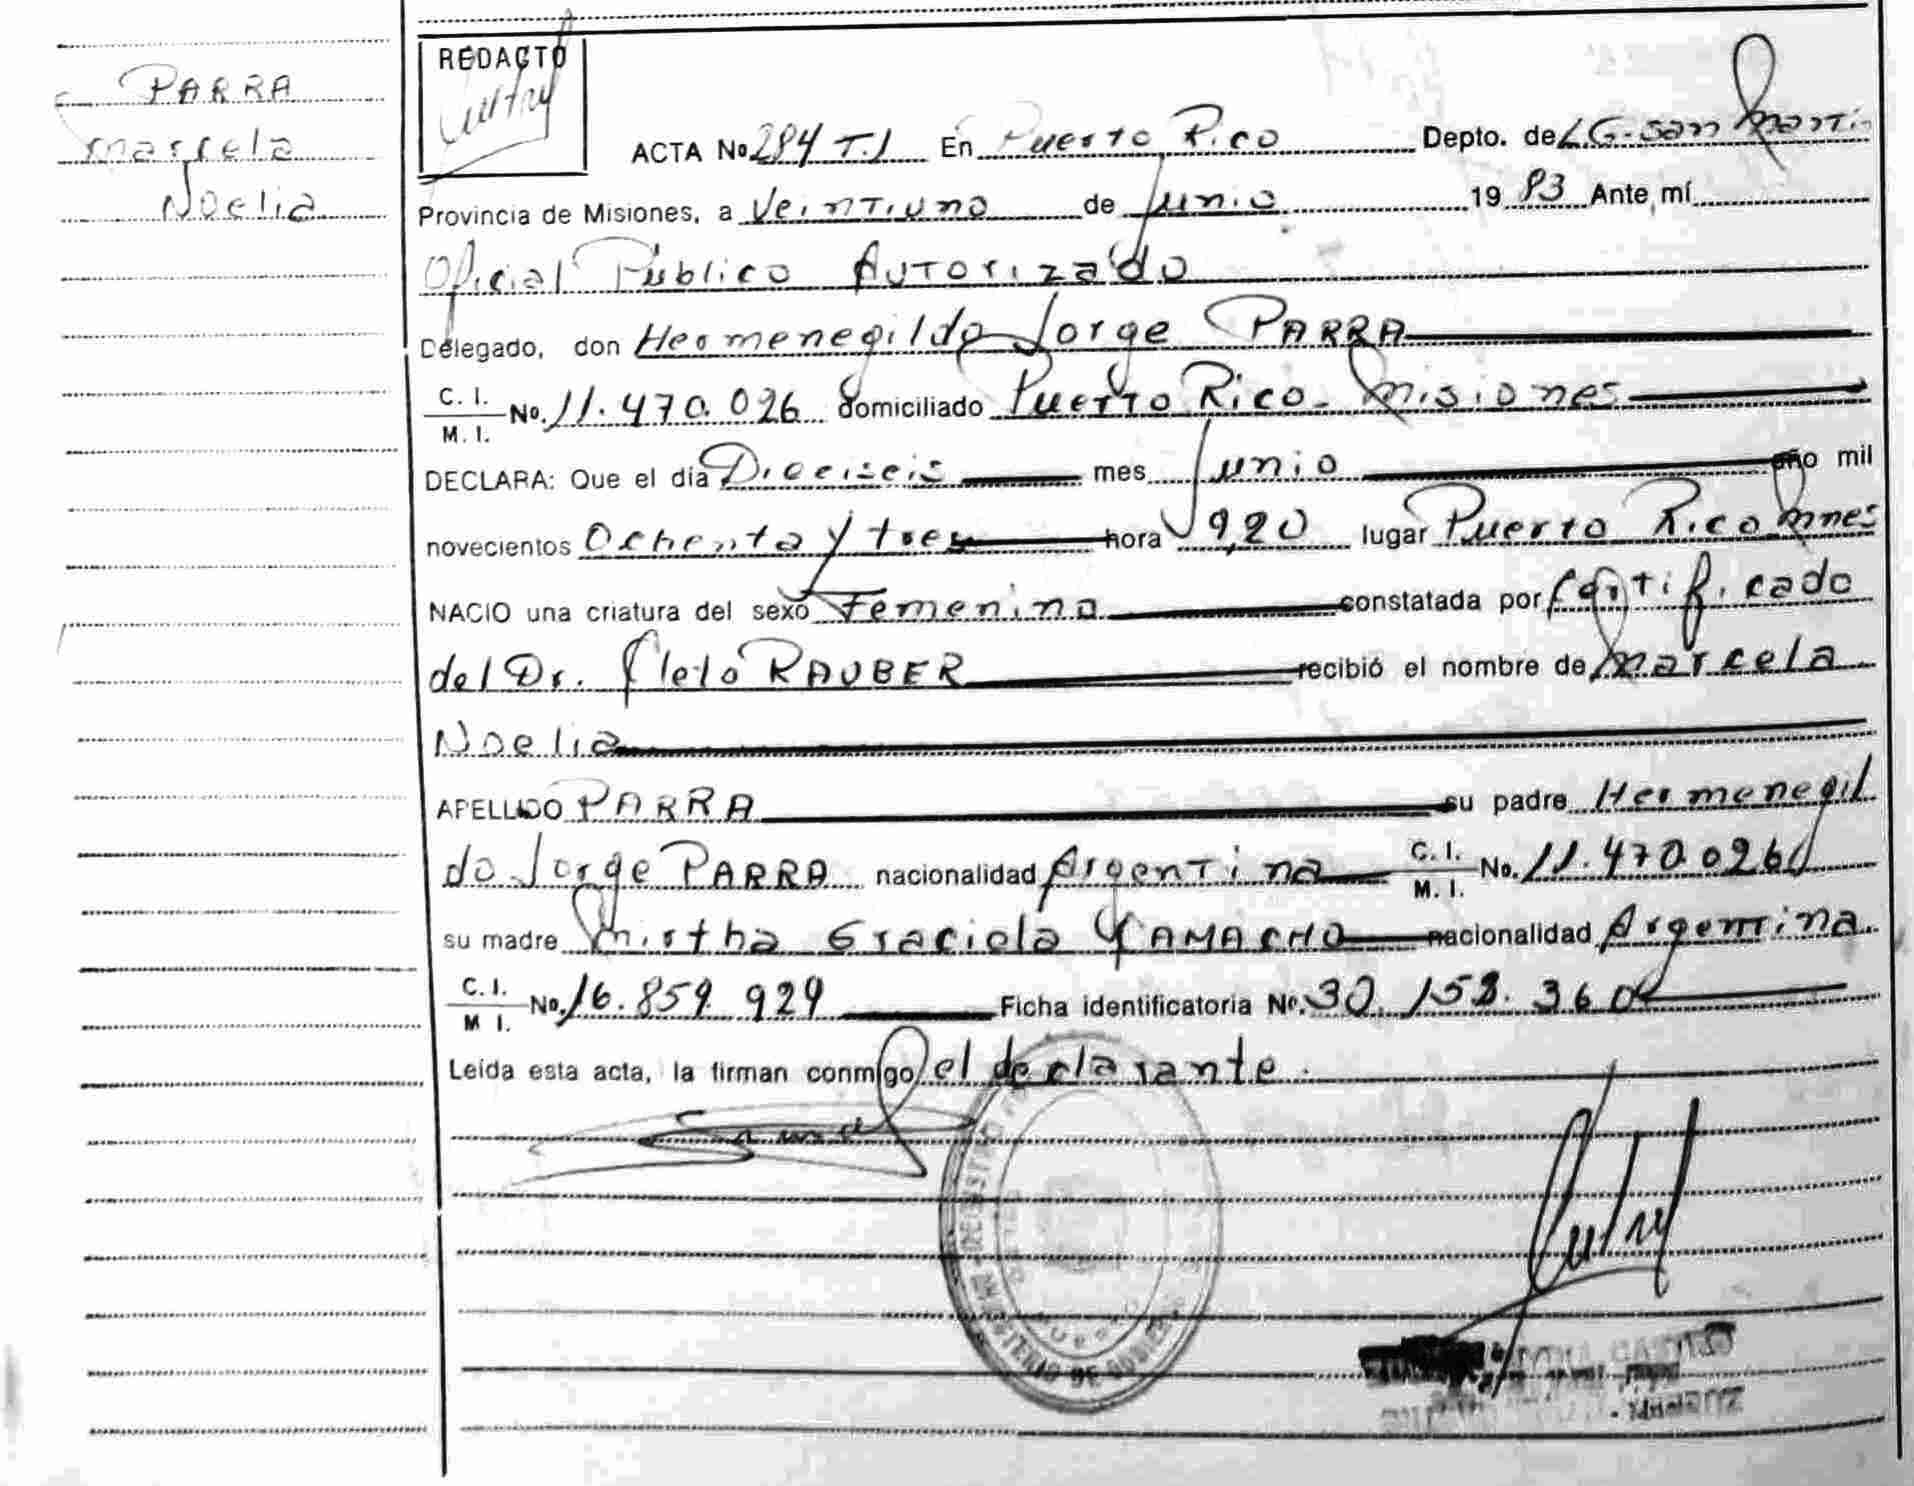 PARRA
Marcela
Noelia
REDACTO
ACTA No 284 T.I En Puerto Rico Depto. de L.G. San Martín
Provincia de Misiones, a Veintiuno de Junio 1983 Ante mí
Oficial Público Autorizado
Delegado, don Hermenegildo Jorge PARRA
C. I. / M. I. No. 11.470.026 domiciliado Puerto Rico - Misiones
DECLARA: Que el día Dieciseis mes Junio año mil
novecientos Ochenta y tres hora 9,20 lugar Puerto Rico Mnes
NACIO una criatura del sexo Femenino constatada por Certificado
del Dr. Cleto RAUBER recibió el nombre de Marcela
Noelia
APELLIDO PARRA su padre Hermenegil
do Jorge PARRA nacionalidad Argentina C. I. / M. I. No. 11.470.026
su madre Mirtha Graciela CAMACHO nacionalidad Argentina.
C. I. / M I. No. 16.859.929 Ficha identificatoria No. 30.158.360
Leída esta acta, la firman conmigo el declarante.
REGISTRO
MINISTERIO DE GOBIERNO